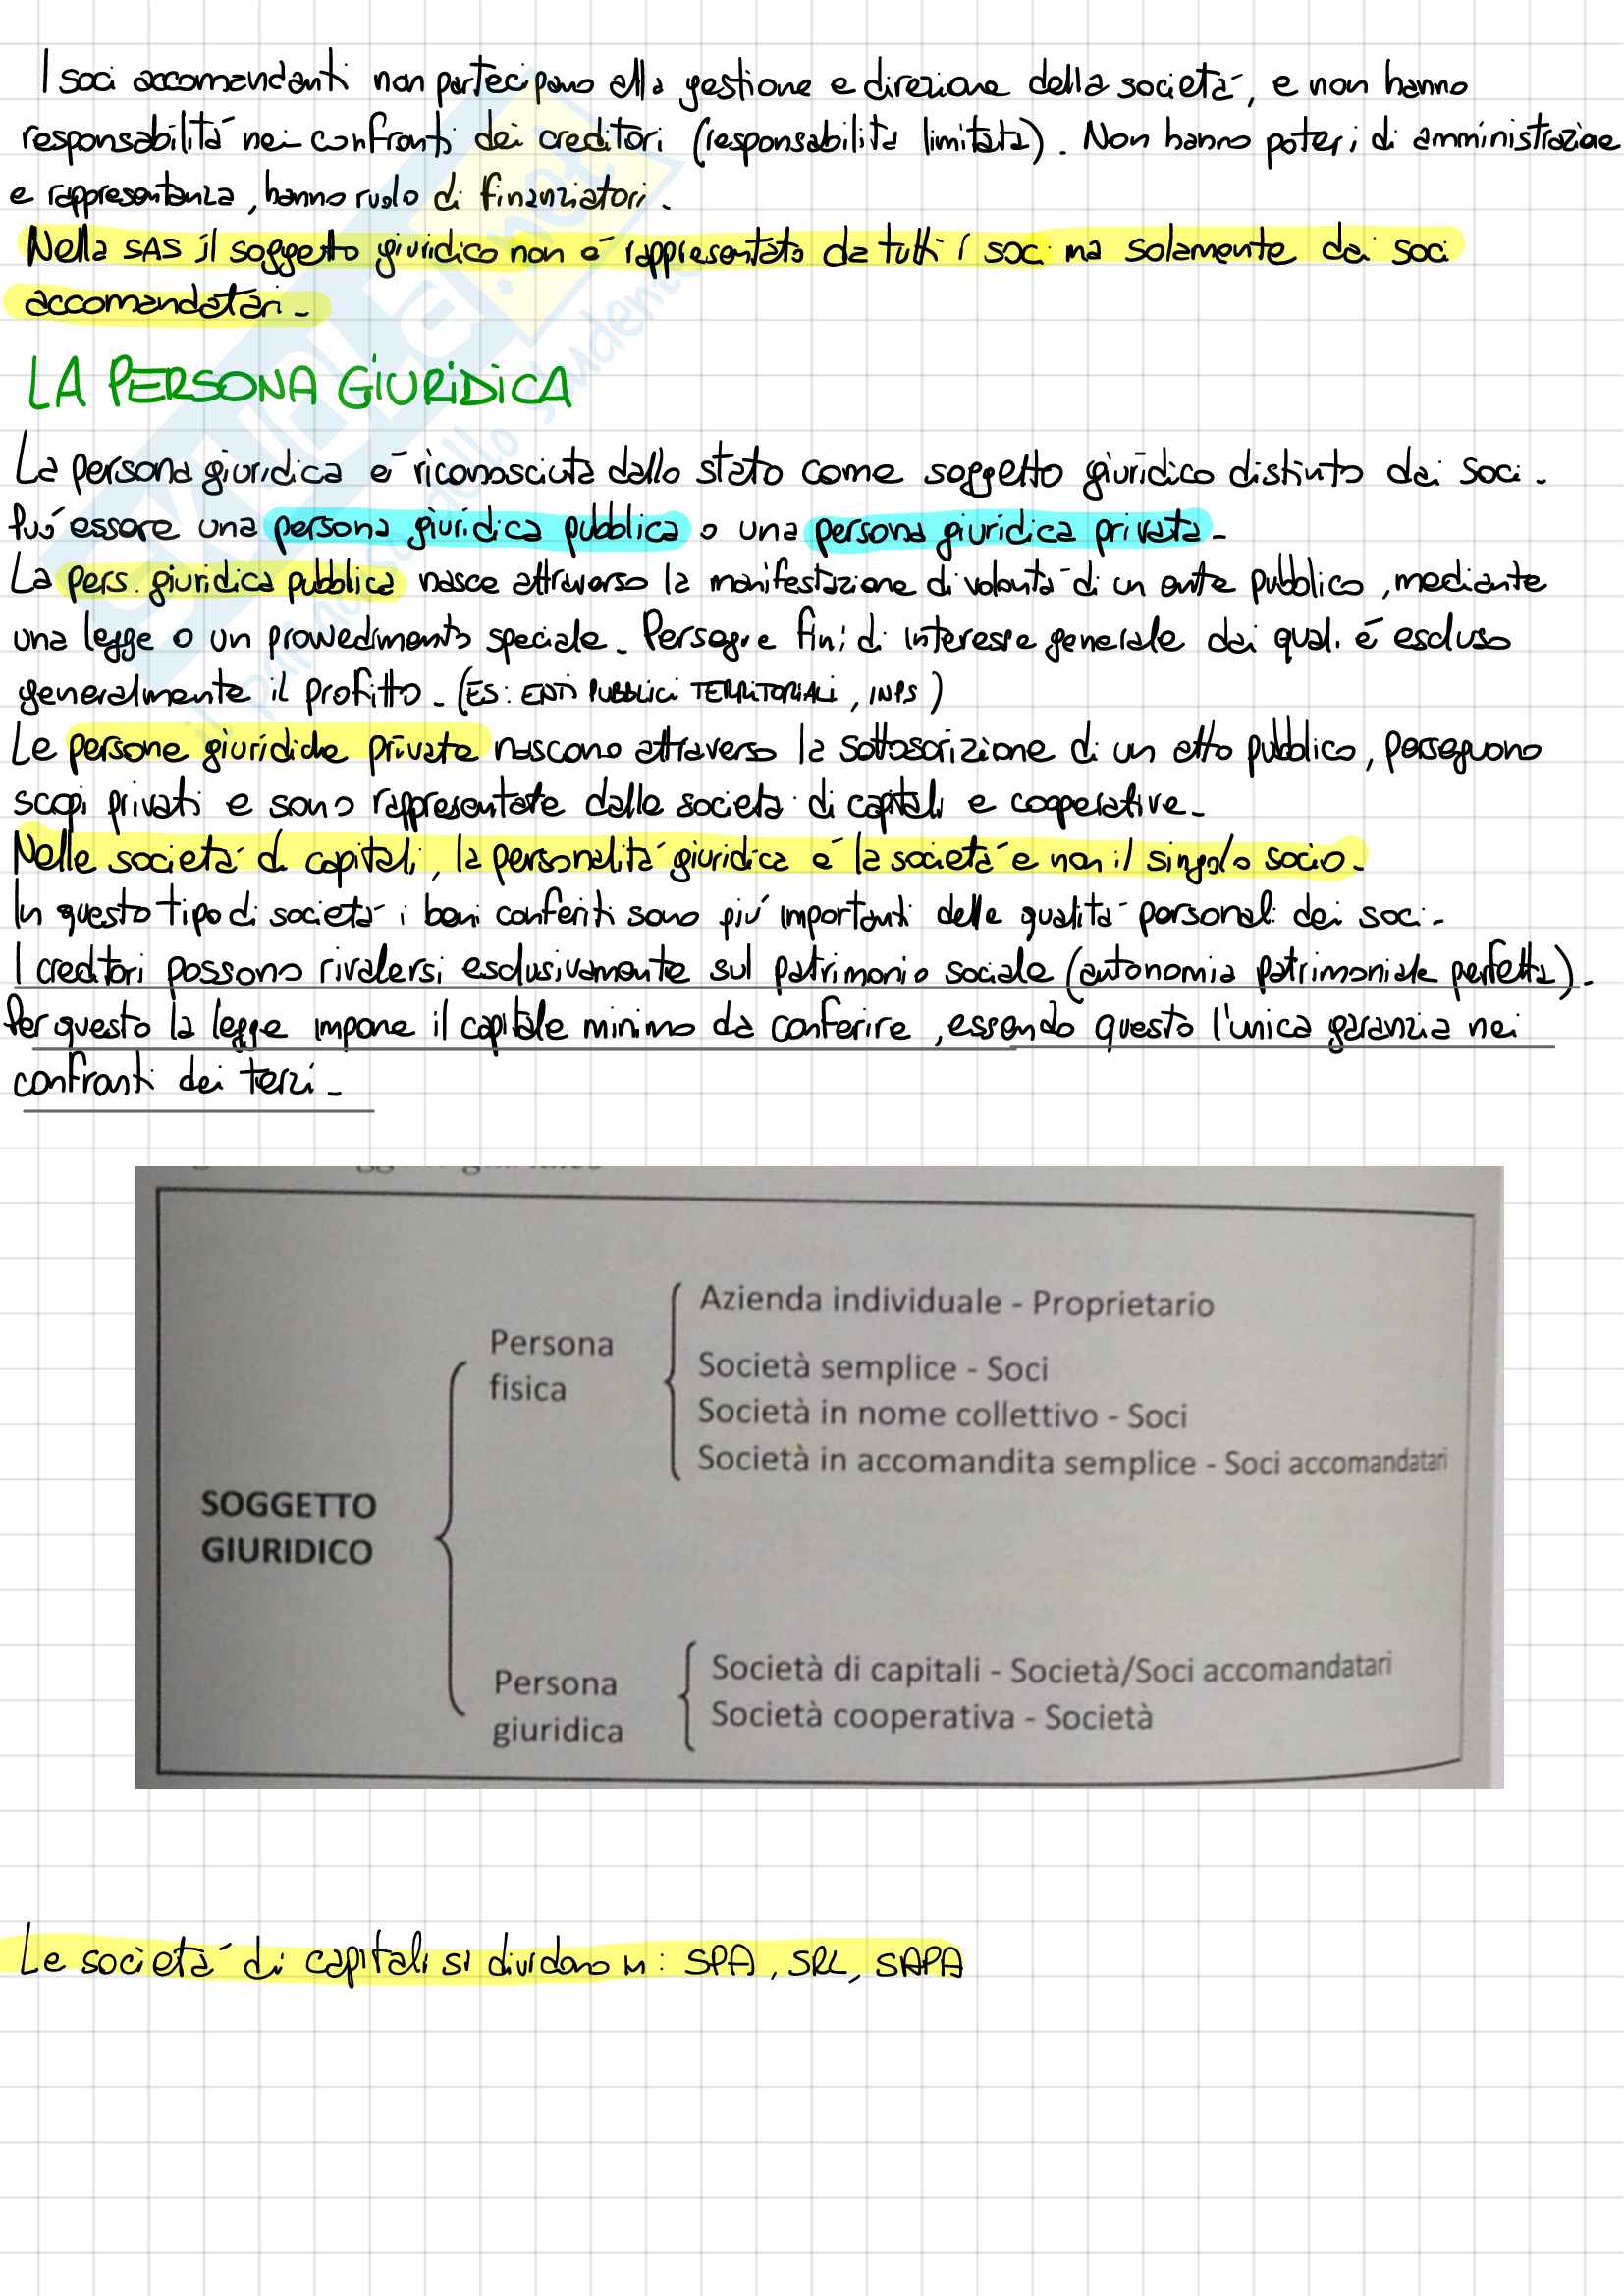 I soci accomandanti non partecipano alla gestione e direzione della società, e non hanno
responsabilità nei confronti dei creditori (responsabilità limitata). Non hanno poteri di amministrazione
e rappresentanza, hanno ruolo di finanziatori.
Nella SAS il soggetto giuridico non è rappresentato da tutti i soci ma solamente dai soci
accomandatari.
LA PERSONA GIURIDICA
La persona giuridica è riconosciuta dallo stato come soggetto giuridico distinto dai soci.
Può essere una persona giuridica pubblica o una persona giuridica privata.
La pers. giuridica pubblica nasce attraverso la manifestazione di volontà di un ente pubblico, mediante
una legge o un provvedimento speciale. Persegue fini di interesse generale dai quali è escluso
generalmente il profitto. (ES: ENTI PUBBLICI TERRITORIALI, INPS)
Le persone giuridiche private nascono attraverso la sottoscrizione di un atto pubblico, perseguono
scopi privati e sono rappresentate dalle società di capitali e cooperative.
Nelle società di capitali, la personalità giuridica è la società e non il singolo socio.
In questo tipo di società i beni conferiti sono più importanti delle qualità personali dei soci.
I creditori possono rivalersi esclusivamente sul patrimonio sociale (autonomia patrimoniale perfetta).
Per questo la legge impone il capitale minimo da conferire, essendo questo l'unica garanzia nei
confronti dei terzi.
SOGGETTO
GIURIDICO
Persona
fisica
Azienda individuale - Proprietario
Società semplice - Soci
Società in nome collettivo - Soci
Società in accomandita semplice - Soci accomandatari
Persona
giuridica
Società di capitali - Società/Soci accomandatari
Società cooperativa - Società
Le società di capitali si dividono in: SPA, SRL, SAPA